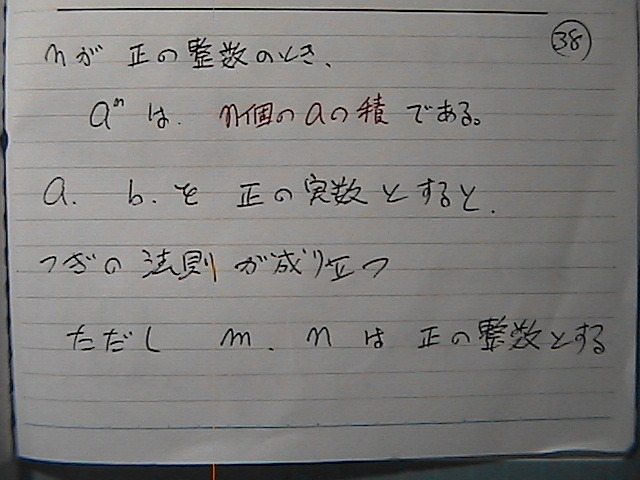 ㊳
nが 正の整数のとき、
aⁿ は. n個のaの積 である。
a. b. を 正の実数 とすると.
つぎの 法則 が成り立つ
ただし m. n は 正の整数とする